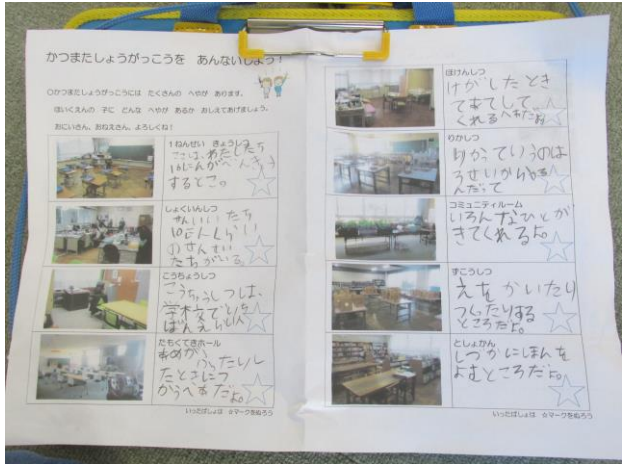 かつまたしょうがっこうを あんないしよう!
○かつまたしょうがっこうには たくさんの へやが あります。
ほいくえんの 子に どんな へやが あるか おしえてあげましょう。
おにいさん、おねえさん、よろしくね!
1ねんせい きょうしつ
ここは、わたしたち
するとこ。
しょくいんしつ
せんせい
たちがいる。
こうちょうしつ
こうちょうしつは、
学校で
たもくてきホール
あめが
ふったりし
たときにつ
かうへやだよ。
いったばしょは ☆マークをぬろう
ほけんしつ
けがしたとき
てあてして
くれるへやだよ
りかしつ
りかっていうのは
3ねんせいから
んだって
コミュニティルーム
いろんなひとが
きてくれるよ。
ずこうしつ
えをかいたり
つくったりする
ところだよ。
としょかん
しずかにほんを
よむところだよ。
いったばしょは ☆マークをぬろう